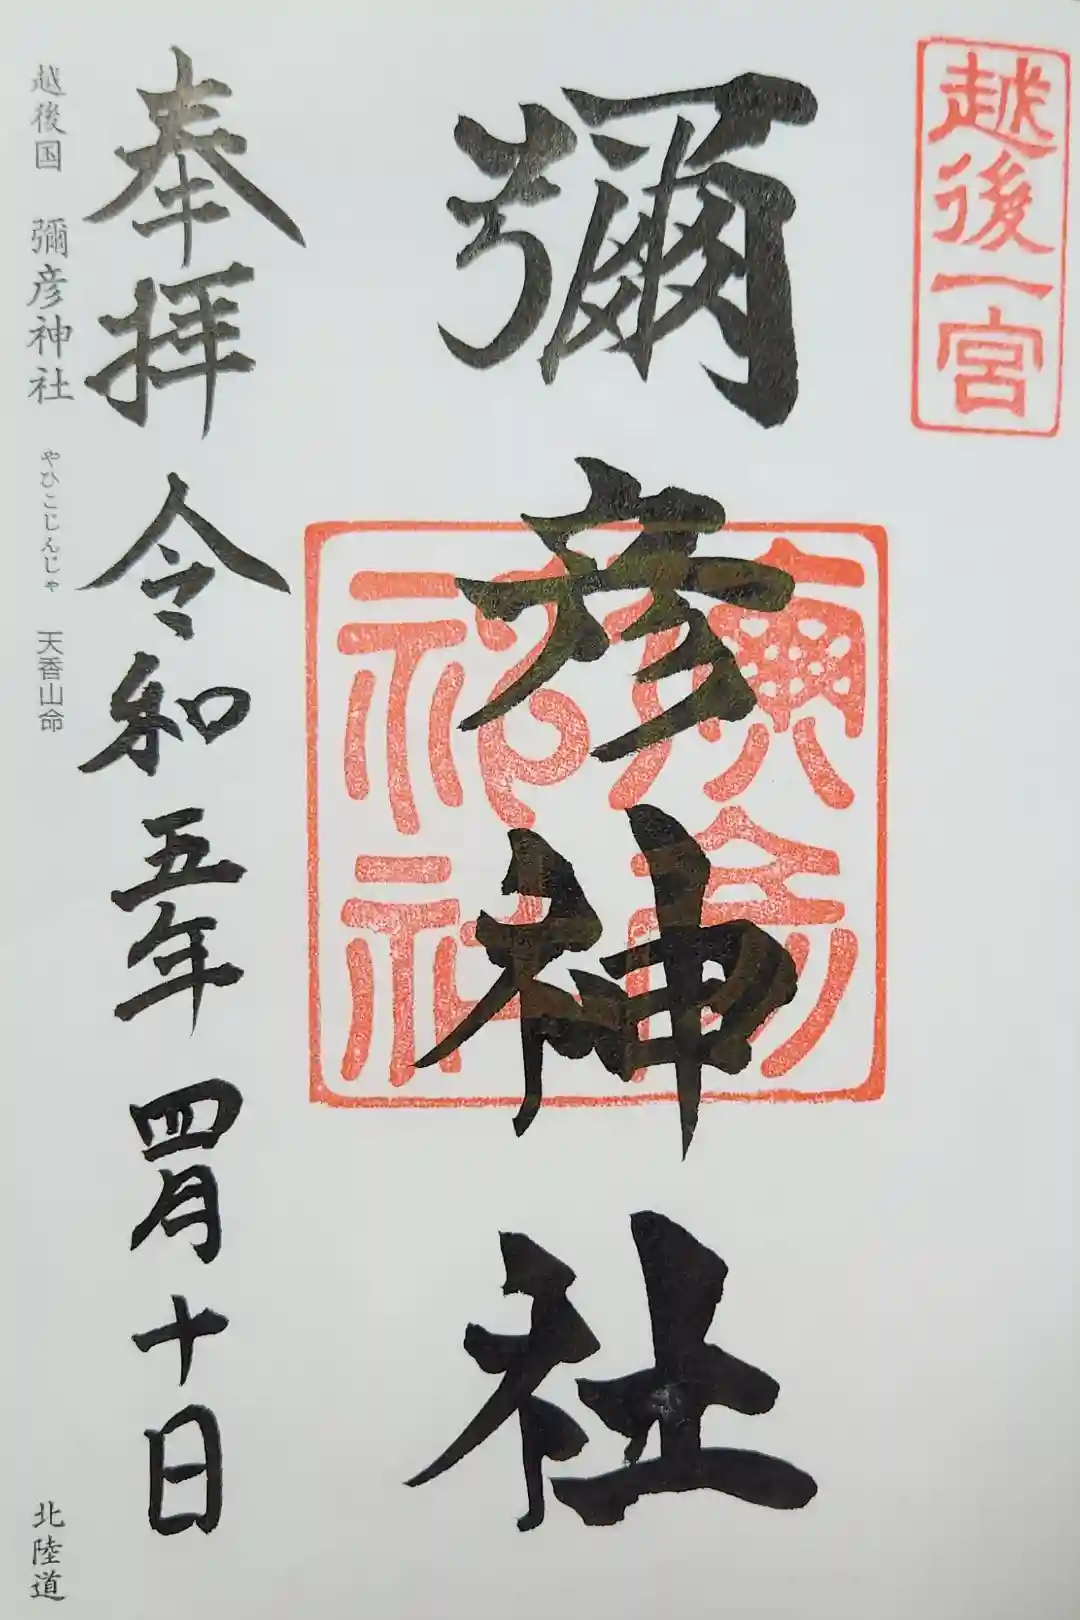 越後一宮
彌彦神社
奉拝 令和五年四月十日
越後国 彌彦神社 やひこじんじゃ 天香山命 北陸道